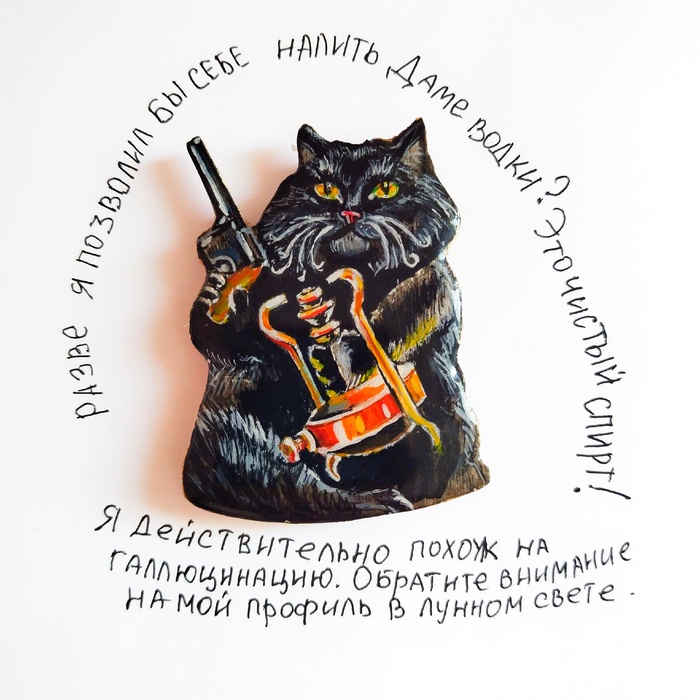 разве я позволил бы себе налить даме водки? Это чистый спирт!
Я действительно похож на
галлюцинацию. Обратите внимание
на мой профиль в лунном свете.